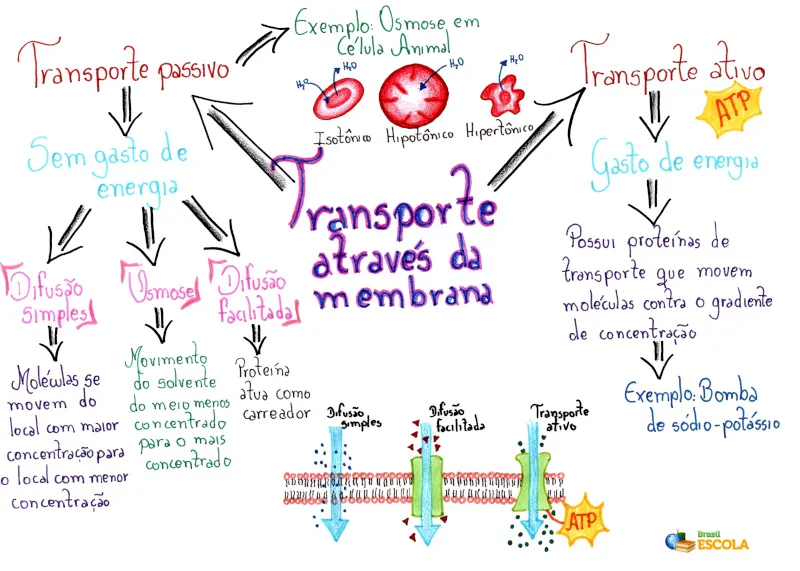 Transporte
através da
membrana
Transporte passivo
Exemplo: Osmose em
Célula Animal
H₂O
H₂O
H₂O
H₂O
Isotônico
Hipotônico
Hipertônico
Sem gasto de
energia
Difusão
simples
Osmose
Difusão
facilitada
Moléculas se
movem do
local com maior
concentração para
o local com menor
concentração
Movimento
do solvente
do meio menos
concentrado
para o mais
concentrado
Proteína
atua como
carreador
Transporte ativo
ATP
Gasto de energia
Possui proteínas de
transporte que movem
moléculas contra o gradiente
de concentração
Exemplo: Bomba
de sódio-potássio
Difusão
simples
Difusão
facilitada
Transporte
ativo
ATP
Brasil
ESCOLA